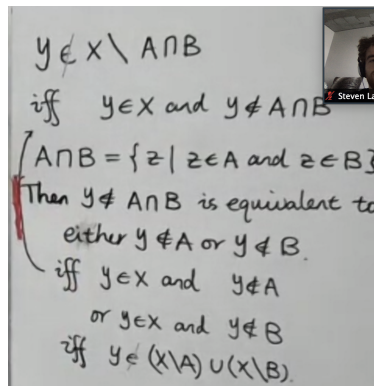 y ∉ X \ A∩B
Steven La
iff y∈X and y∉A∩B
A∩B = {z | z∈A and z∈B}
Then y∉ A∩B is equivalent to
either y∉A or y∉B.
iff y∈X and y∉A
or y∈X and y∉B
iff y∈(X\A)∪(X\B).